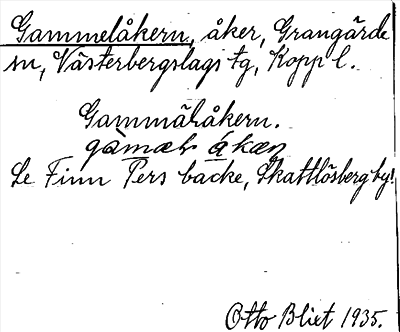 Gammelåkern, åker, Grangärde
sn, Västerbergslags tg, Kopp l.
Gammälåkern.
Se Finn Pers backe, Skattlösberg by!
Otto Blixt 1935.